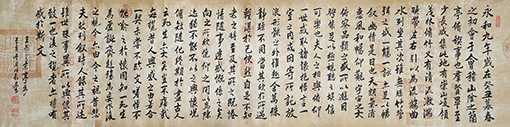 永和九年歲在癸丑暮春
之初會于會稽山陰之蘭
亭脩稧事也群賢畢至
少長咸集此地有崇山峻領
茂林脩竹又有清流激湍
暎帶左右引以為流觴曲
水列坐其次雖無絲竹管
弦之盛一觴一詠亦足以暢
敘幽情是日也天朗氣清
惠風和暢仰觀宇宙之大
俯察品類之盛所以遊目
騁懷足以極視聽之娛信
可樂也夫人之相與俯仰
一世或取諸懷抱悟言一
室之內或因寄所託放
浪形骸之外雖趣舍萬殊
靜躁不同當其欣於所遇
暫得於己快然自足不知
老之將至及其所之既惓
情隨事遷感慨係之矣
向之所欣俛仰之間以為陳
迹猶不能不以之興懷況
脩短隨化終期於盡古人
云死生亦大矣豈不痛哉
每攬昔人興感之由若合
一契未嘗不臨文嗟悼不
能喻之於懷固知一死生
為虛誕齊彭殤為妄作後
之視今亦由今之視昔悲
夫故列敘時人錄其所述
雖世殊事異所以興懷其
致一也後之攬者亦將有
感於斯文